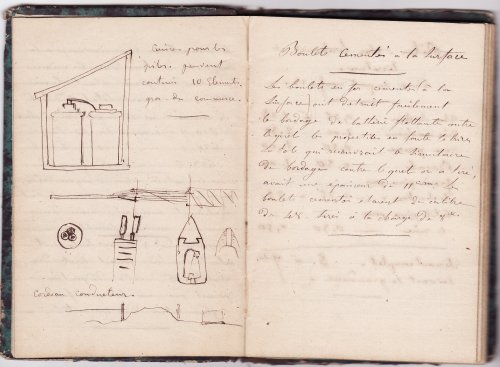 Caisses pour les
piles, peuvent
contenir 10 Elements
du commerce.
Cordeau conducteur.
Boulets cementés à la surface
Les boulets en fer cementés à la
surface ont detruit facilement
le bordage de batterie flottante contre
lequel les projectiles en fonte
qui
de bordage contre lequel on a tiré,
avait une epaisseur de 11
boulets cementés etaient de calibre
de 48 tirés à la charge de